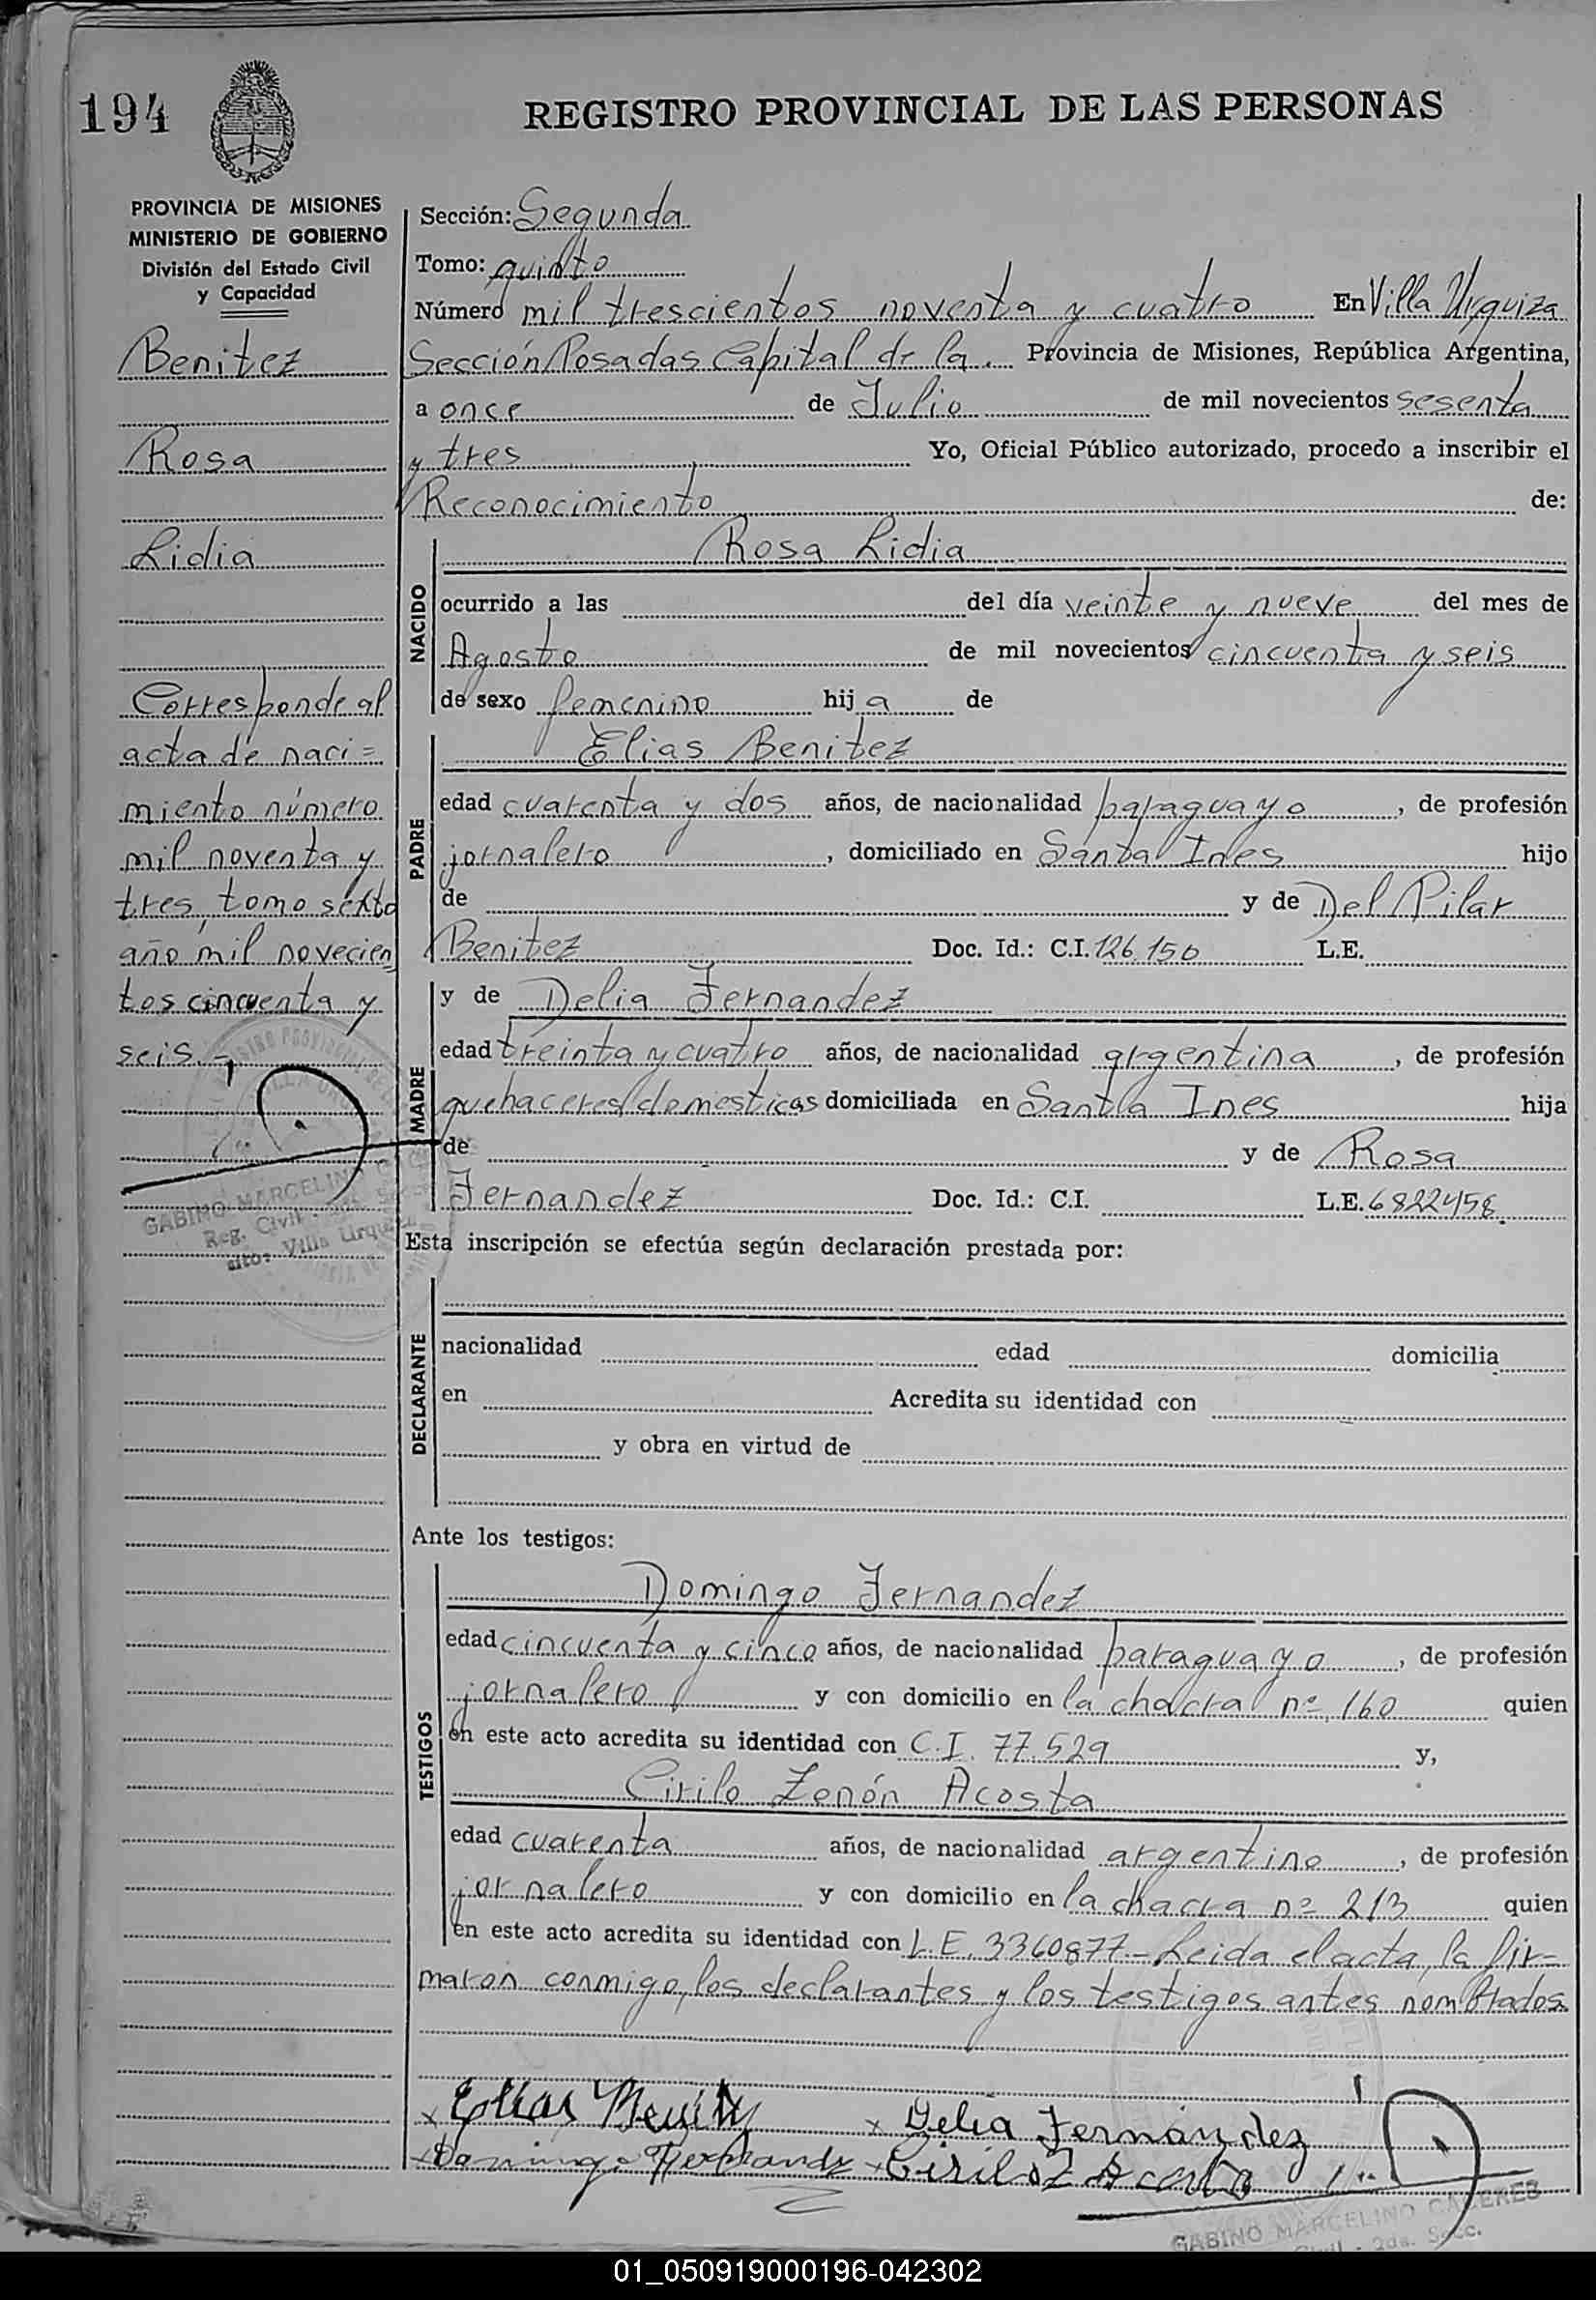 194
REGISTRO PROVINCIAL DE LAS PERSONAS
PROVINCIA DE MISIONES
MINISTERIO DE GOBIERNO
División del Estado Civil
y Capacidad
Benitez
Rosa
Lidia
Corresponde al
acta de naci=
miento número
mil noventa y
tres, tomo sexto
año mil novecien
tos cincuenta y
seis.-
GABINO MARCELINO
Reg. Civil
Villa Urqui
Sección: Segunda
Tomo: quinto
Número mil trescientos noventa y cuatro En Villa Urquiza
Sección Posadas Capital de la. Provincia de Misiones, República Argentina,
a once de Julio de mil novecientos sesenta
y tres Yo, Oficial Público autorizado, procedo a inscribir el
Reconocimiento de:
NACIDO
Rosa Lidia
ocurrido a las del día veinte y nueve del mes de
Agosto de mil novecientos cincuenta y seis
de sexo femenino hij a de
PADRE
Elias Benitez
edad cuarenta y dos años, de nacionalidad paraguayo, de profesión
jornalero, domiciliado en Santa Ines hijo
de y de Del Pilar
Benitez Doc. Id.: C.I. 126.150 L.E.
MADRE
y de Delia Fernandez
edad treinta y cuatro años, de nacionalidad argentina, de profesión
quehaceres domesticas domiciliada en Santa Ines hija
de y de Rosa
Fernandez Doc. Id.: C.I. L.E. 6822458
Esta inscripción se efectúa según declaración prestada por:
DECLARANTE
nacionalidad edad domicilia
en Acredita su identidad con
y obra en virtud de
Ante los testigos:
TESTIGOS
Domingo Fernandez
edad cincuenta y cinco años, de nacionalidad paraguayo, de profesión
jornalero y con domicilio en la chacra nº 160 quien
en este acto acredita su identidad con C.I. 77.529 y,
Cirilo Zenón Acosta
edad cuarenta años, de nacionalidad argentino, de profesión
jornalero y con domicilio en la chacra nº 213 quien
en este acto acredita su identidad con L.E. 3360877.- Leida el acta, la fir=
maron conmigo, los declarantes y los testigos antes nombrados.
x Elias Benitez x Delia Fernández
x Domingo Fernandez x Cirilo Z Acosta
GABINO MARCELINO CACERES
Civil - 2da. Secc.
01_050919000196-042302